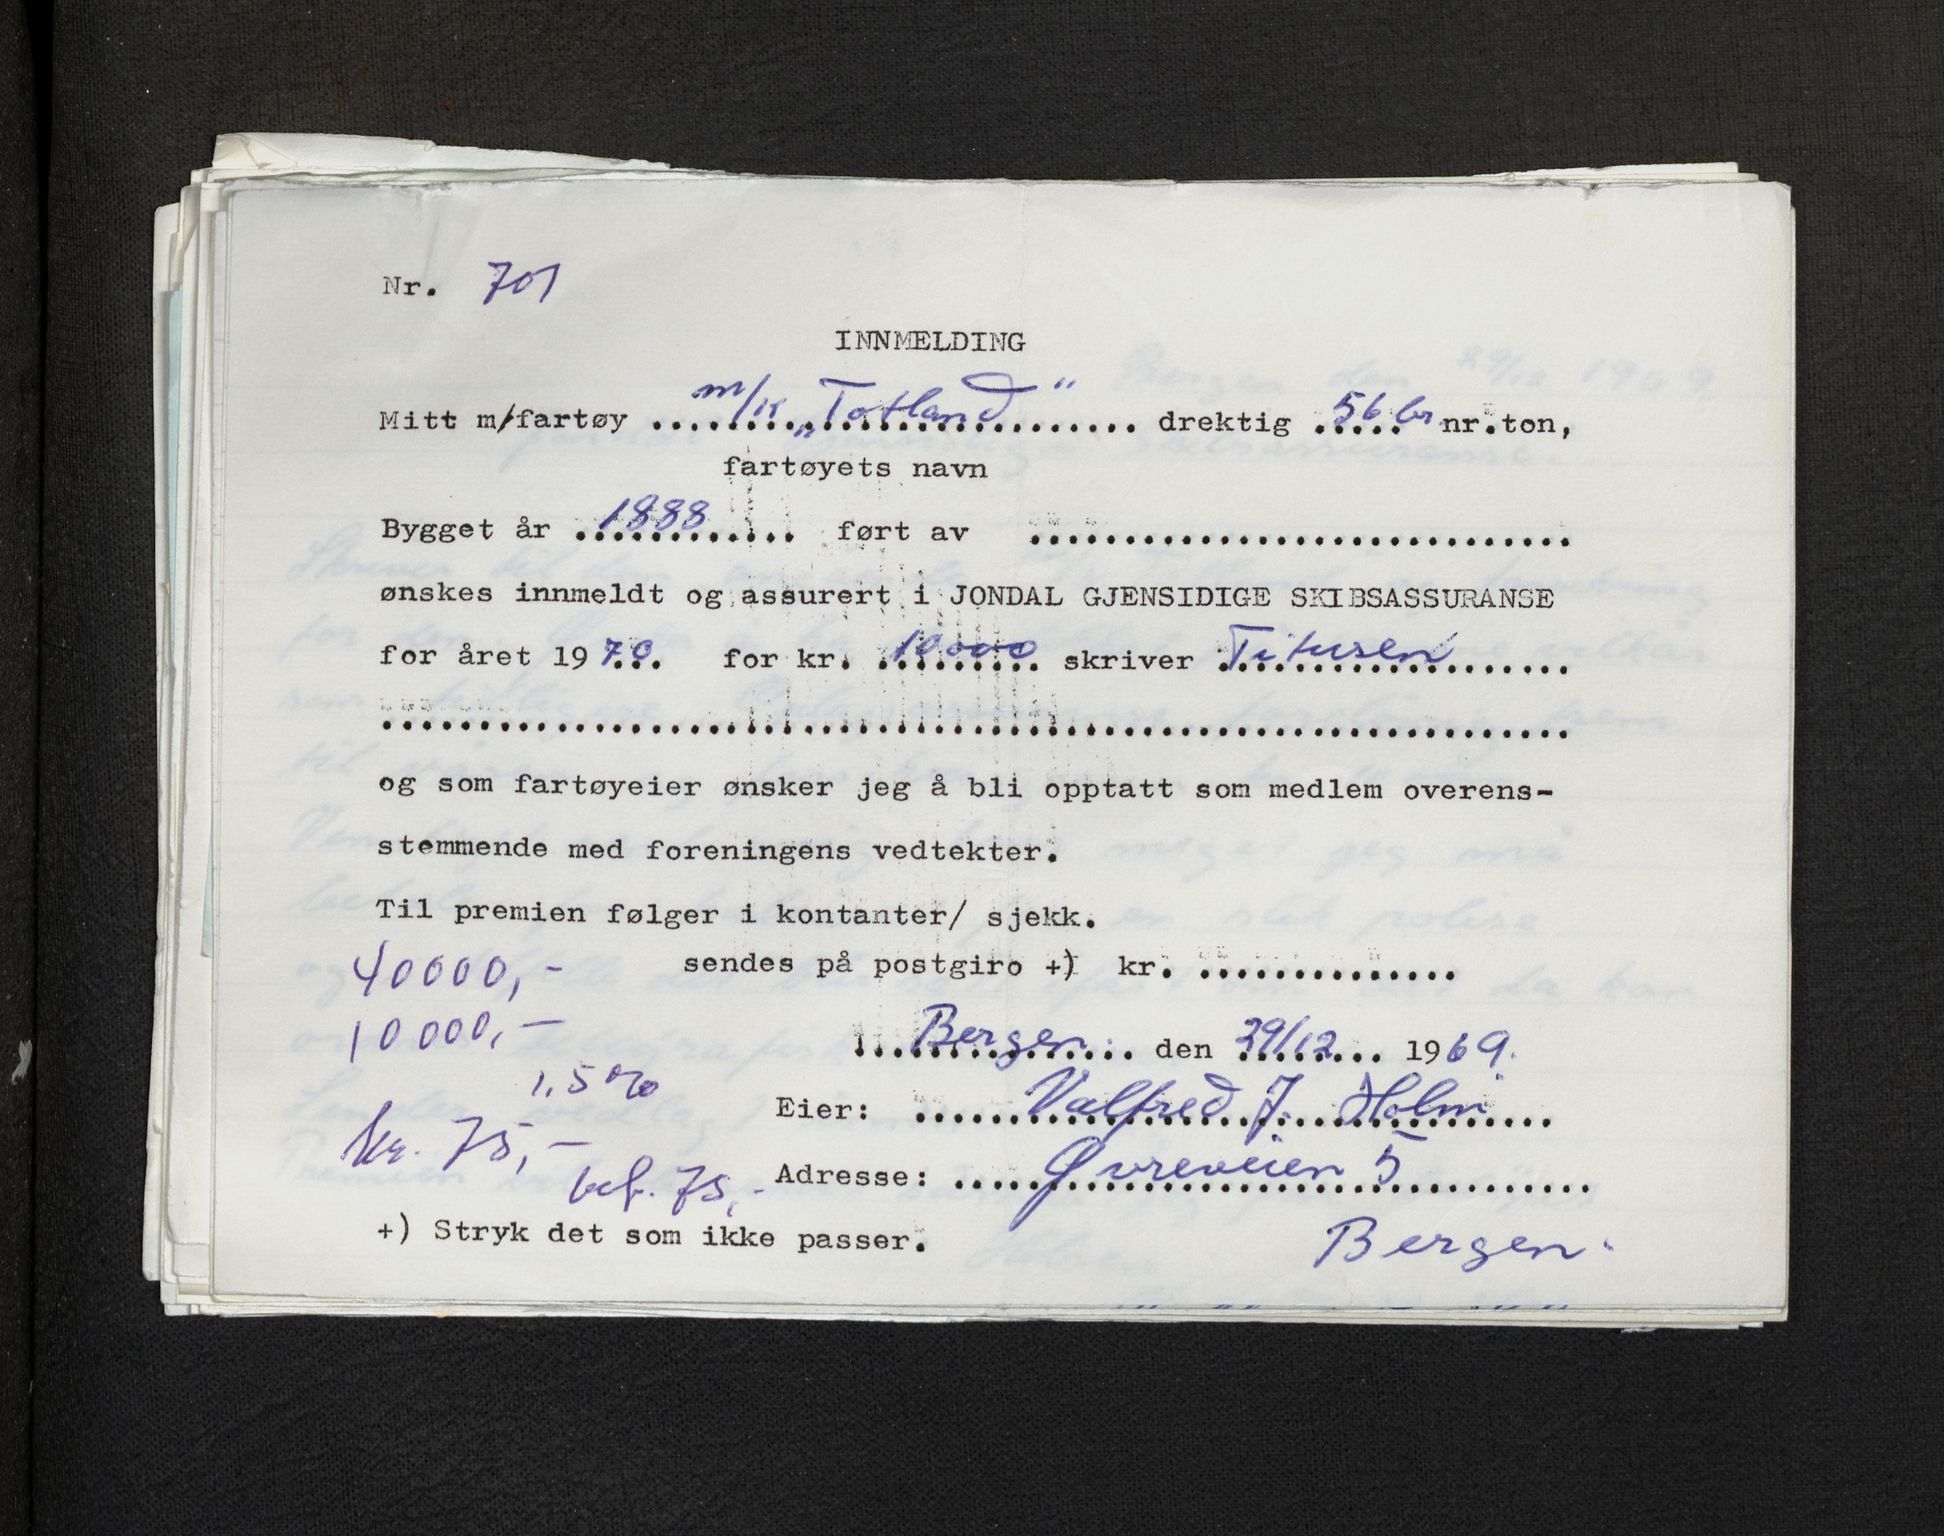 Nr. 701
INNMELDING
Mitt m/fartøy m/k "Totland" drektig 56 br nr.ton,
fartøyets navn
Bygget år 1888 ført av ..............................
ønskes innmeldt og assurert i JONDAL GJENSIDIGE SKIBSASSURANSE
for året 1970 for kr. 10000 skriver Titusen
................................................................
og som fartøyeier ønsker jeg å bli opptatt som medlem overens-
stemmende med foreningens vedtekter.
Til premien følger i kontanter/ sjekk.
40000,- sendes på postgiro +) kr. ..............
10000,- Bergen den 29/12 1969.
1.5%
Eier: Valfred J. Holm
kr. 75,-
bet. 75,- Adresse: Øvreveien 5
+) Stryk det som ikke passer.
Bergen.